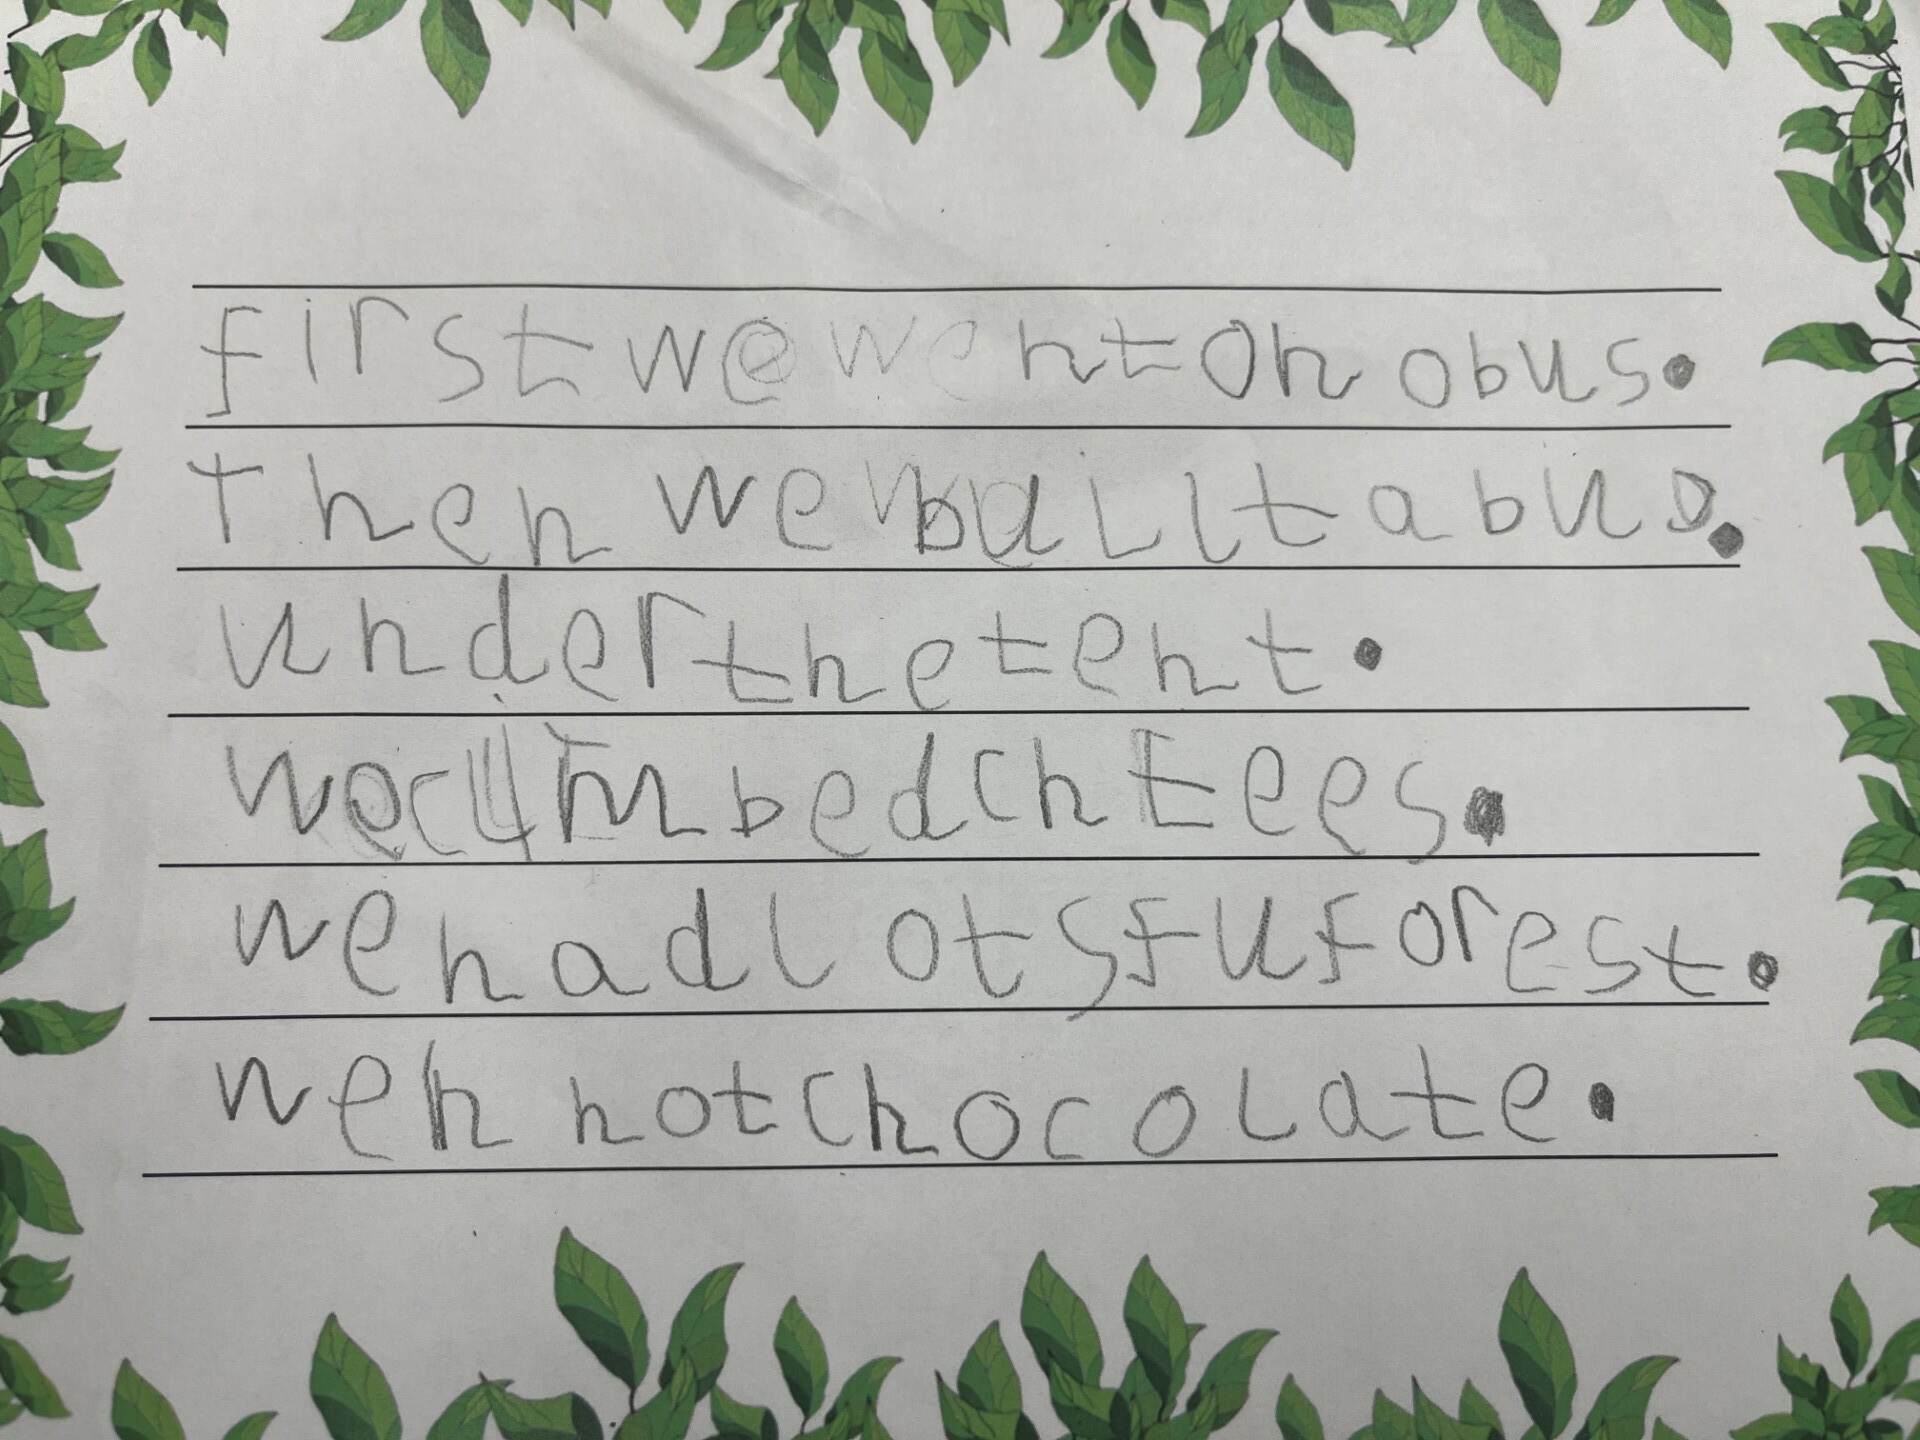 first we went on o bus.
then we built a bus.
under the tent.
we climbed ch tees.
we had lots fu forest.
we h hot chocolate.